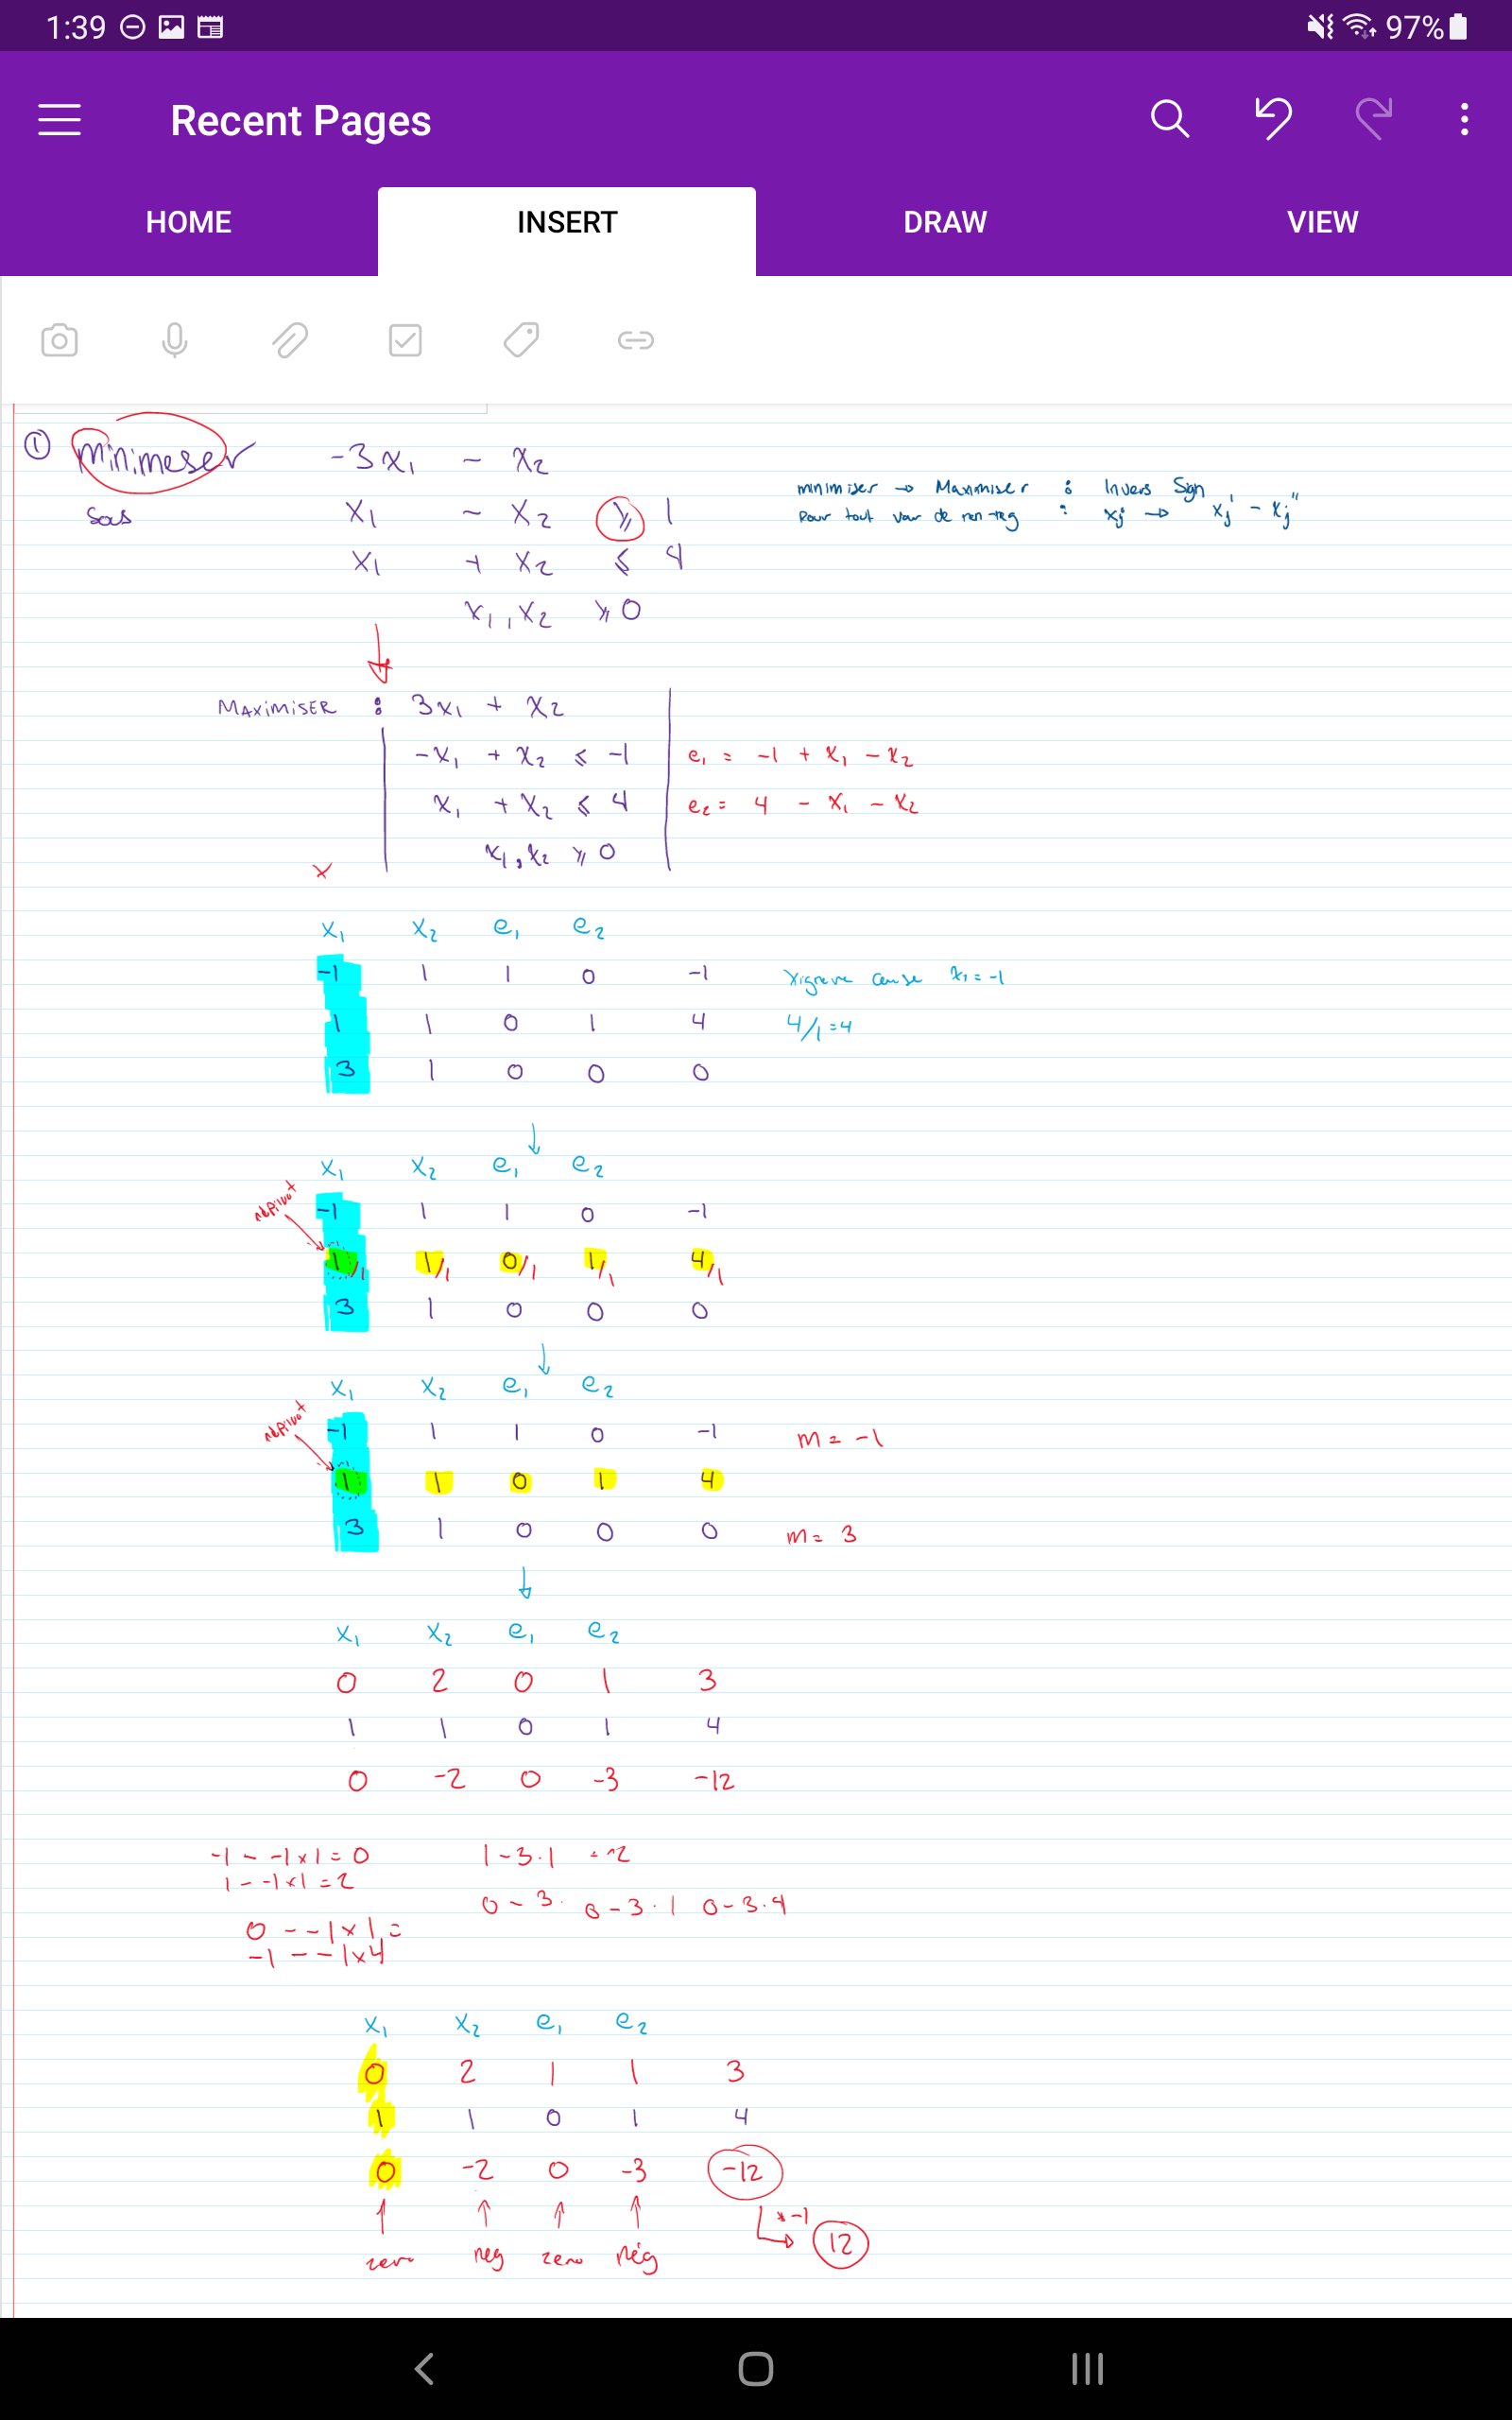 1:39 97%
Recent Pages
HOME INSERT DRAW VIEW
① minimeser -3x₁ - x₂
Sous x₁ - x₂ ⩾ 1
x₁ + x₂ ⩽ 4
x₁, x₂ ⩾ 0
minimiser → Maximiser : Invers Sign
Pour tout var de non-neg : xj → xj' - xj"
MAXIMISER : 3x₁ + x₂
-x₁ + x₂ ⩽ -1 e₁ = -1 + x₁ - x₂
x₁ + x₂ ⩽ 4 e₂ = 4 - x₁ - x₂
x₁, x₂ ⩾ 0
x
x₁ x₂ e₁ e₂
-1 1 1 0 -1 cause x₁ = -1
1 1 0 1 4 4/1 = 4
3 1 0 0 0
x₁ x₂ e₁ e₂
-1 1 1 0 -1
1/1 1/1 0/1 1/1 4/1
3 1 0 0 0
x₁ x₂ e₁ e₂
-1 1 1 0 -1 m = -1
1 1 0 1 4
3 1 0 0 0 m = 3
x₁ x₂ e₁ e₂
0 2 0 1 3
1 1 0 1 4
0 -2 0 -3 -12
-1 - -1 x 1 = 0 1 - 3 · 1 = -2
1 - -1 x 1 = 2
0 - 3 · 0 - 3 · 1 0 - 3 · 4
0 - -1 x 1 =
-1 - -1 x 4
x₁ x₂ e₁ e₂
0 2 1 1 3
1 1 0 1 4
0 -2 0 -3 -12
* -1
12
zero neg zero nég